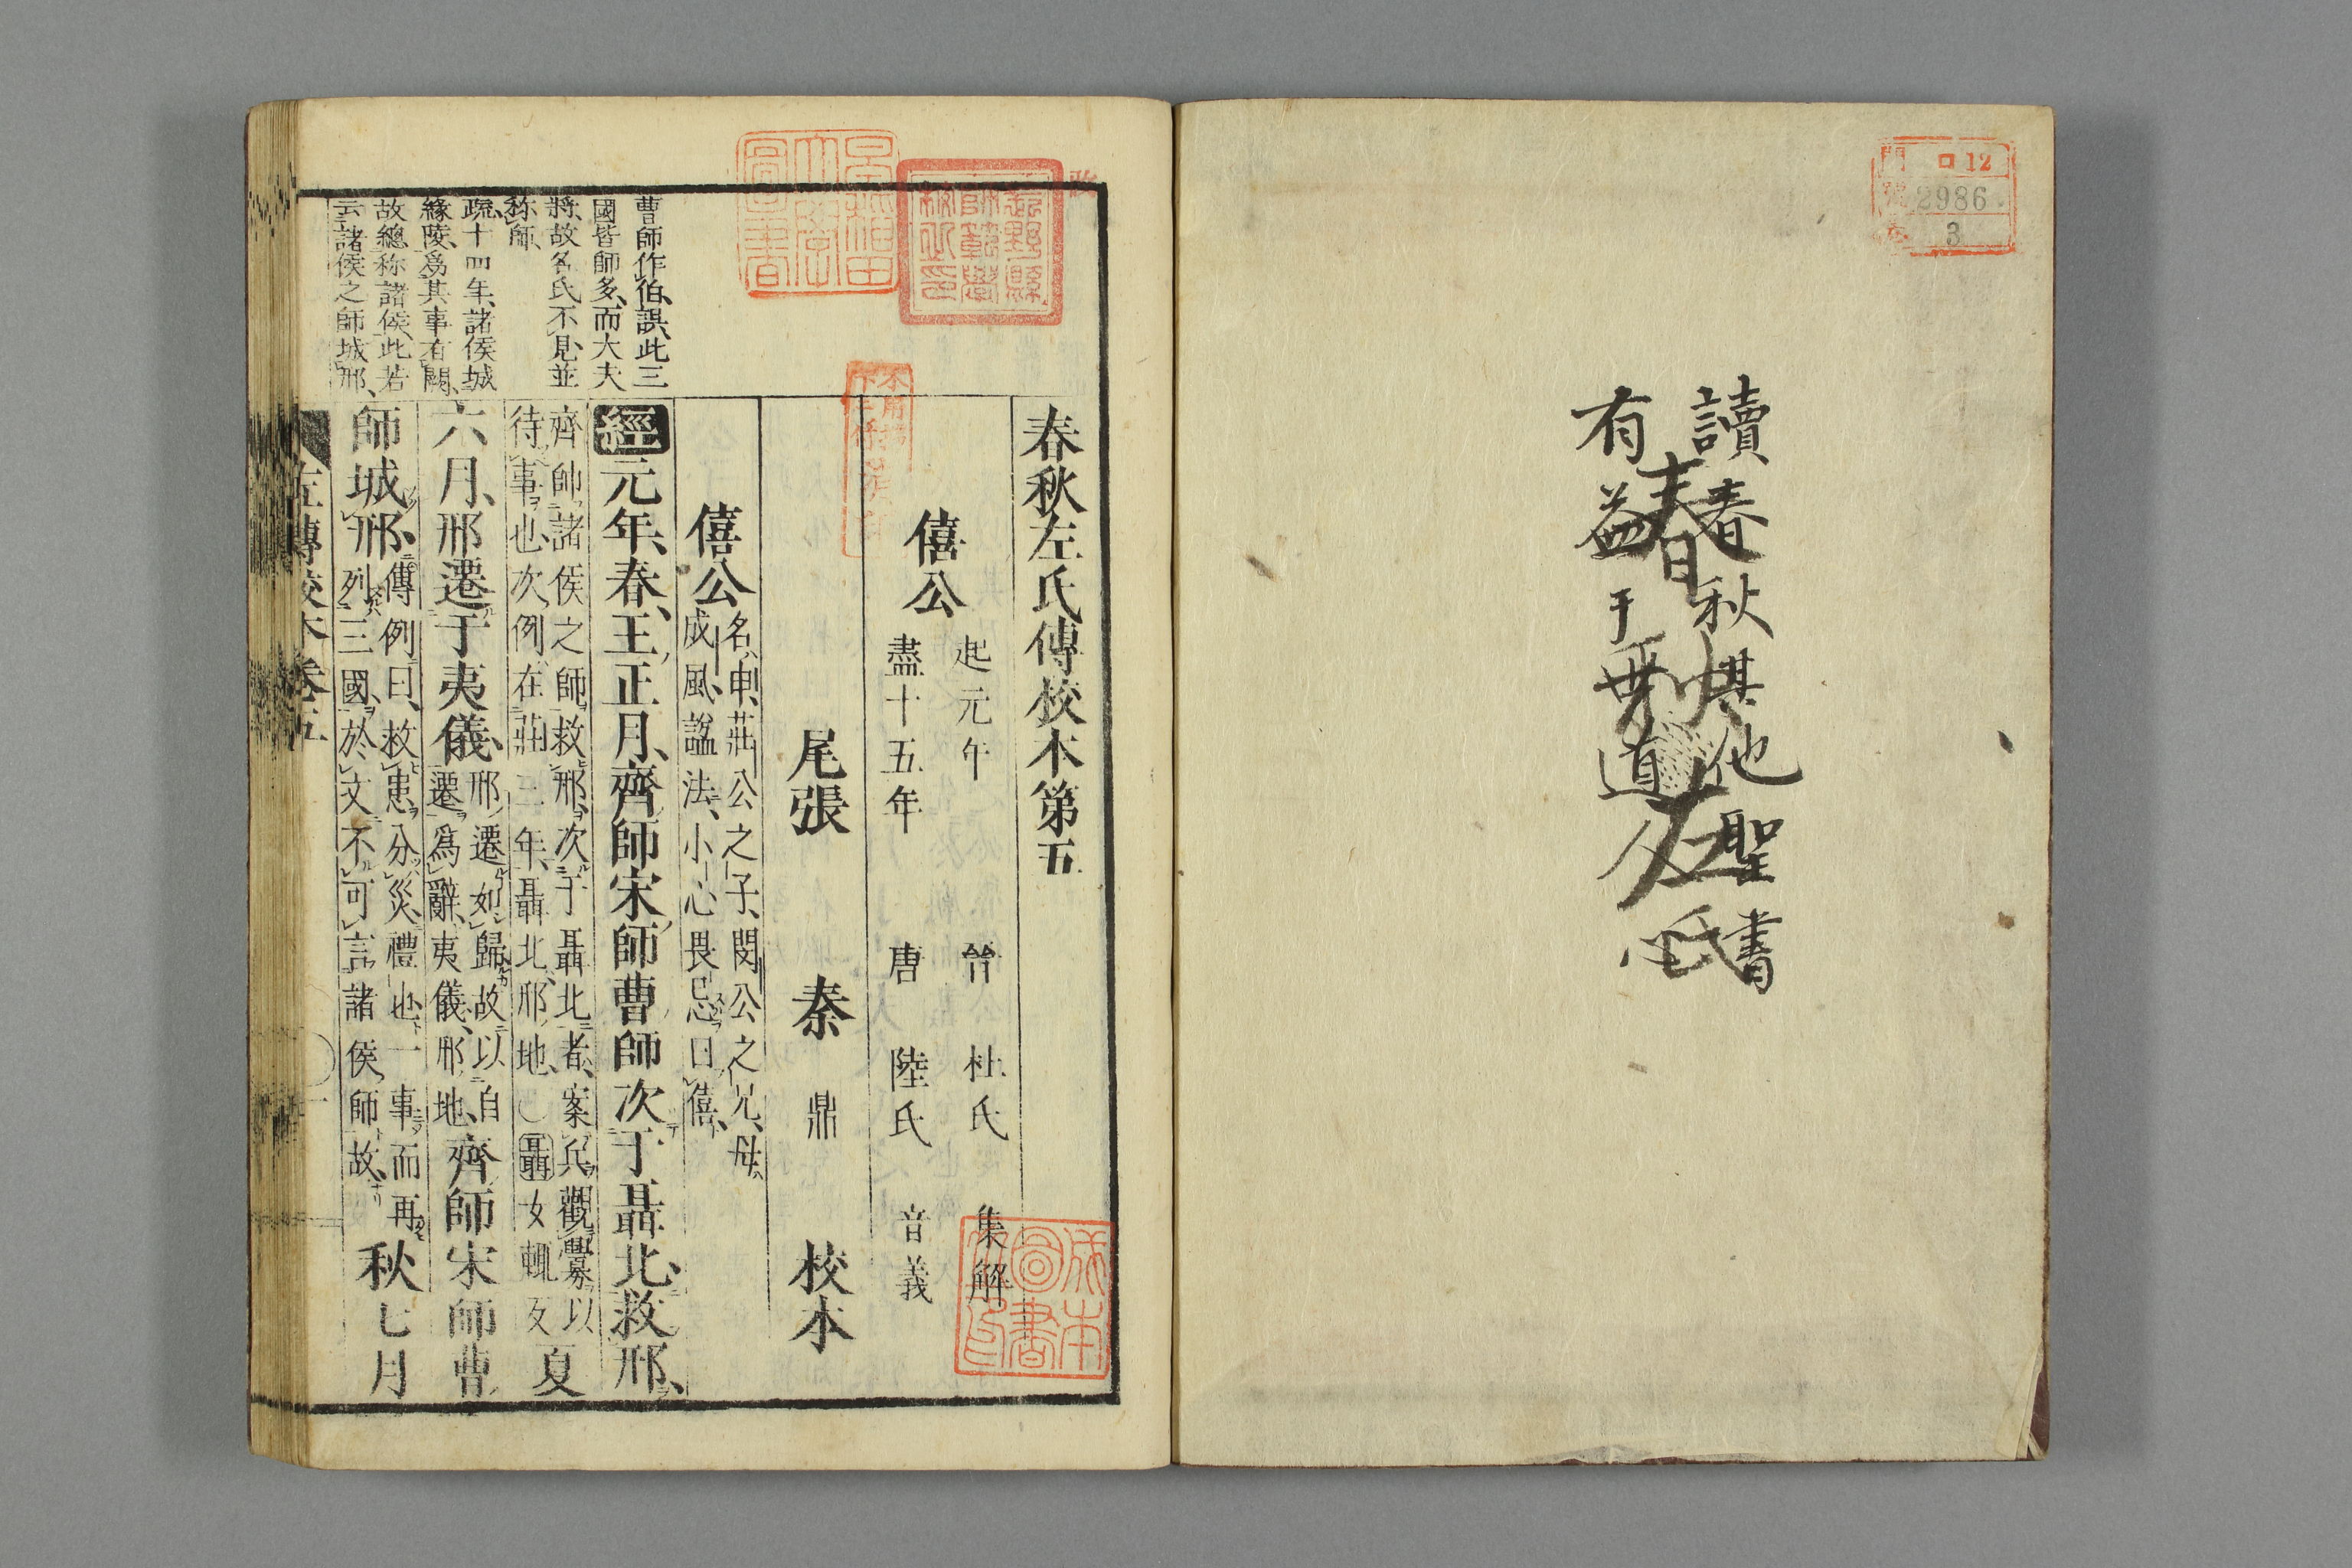 門 ロ12
號 2986
卷 3
讀春秋其他聖書
有益于世道人心
春秋左氏傳校本第五
僖公
起元年
盡十五年
晉 杜氏 集解
唐 陸氏 音義
尾張 秦 鼎 校本
僖公
名申、莊公之子、閔公之兄、母
成風、諡法、小心畏忌曰僖、
經元年、春、王正月、齊師宋師曹師次于聶北、救邢、
齊帥諸侯之師救邢、次于聶北者、案兵觀釁以
待事也、次例在莊三年、聶北、邢地、〇聶女輒反
夏
六月、邢遷于夷儀、
邢遷如歸、故以自
遷爲辭、夷儀、邢地、
齊師宋師曹
師城邢、
傳例曰、救患分災、禮也、一事而再
列三國、於文不可言諸侯師故、
秋七月
曹師作伯、誤、此三
國皆師多、而大夫
將、故名氏不見、並
称師、
疏、十四年、諸侯城
緣陵、爲其事有闕、
故總称諸侯、此若
云諸侯之師城邢、
左傳校本 卷五
一